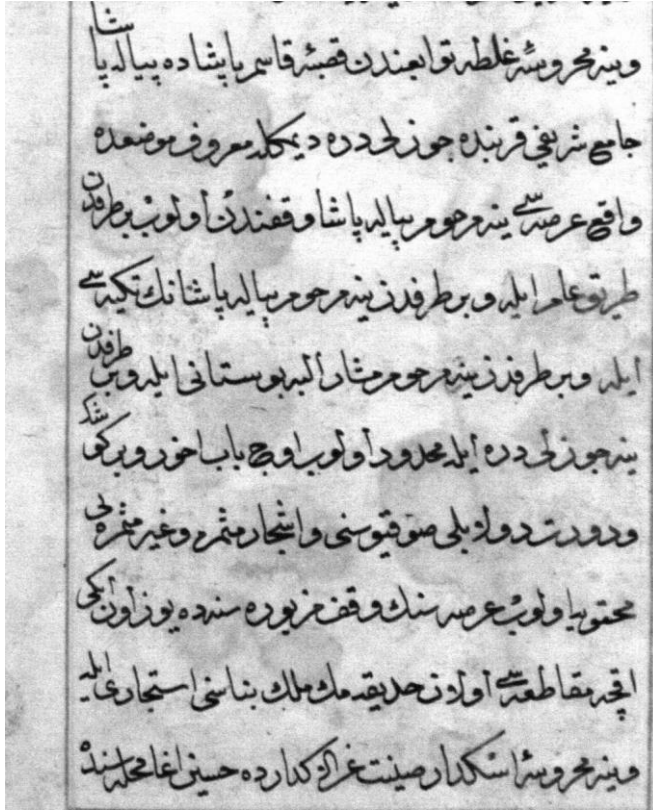 وينه محروسهٔ غلطه توابعندن قصبهٔ قاسم پاشاده پياله پاشا
جامع شريفي قربنده جوزلى دره ديمكله معروف موضعده
واقع عرصه سى ينه مرحوم پياله پاشا وقفندن اولوب بر طرفدن
طريق عام ايله و بر طرفدن ينه مرحوم پياله پاشانك تكيه سى
ايله و بر طرفدن ينه مرحوم مشار اليه بوستانى ايله و بر طرفدن
ينه جوزلى دره ايله محدود اولوب اوچ باب اخور و بر كوشك
و دورت دولابلى صو قيوسنى و اشجار مثمره و غير مثمره يى
محتويا اولوب عرصه سنك وقف مزبوره سنده يوز اون ايكى
اقچه مقاطعه سى اولان حديقه مك ملك بناسنى استجارى ايله
وينه محروسهٔ اسكدار كدارده حسين اغا محله سنده